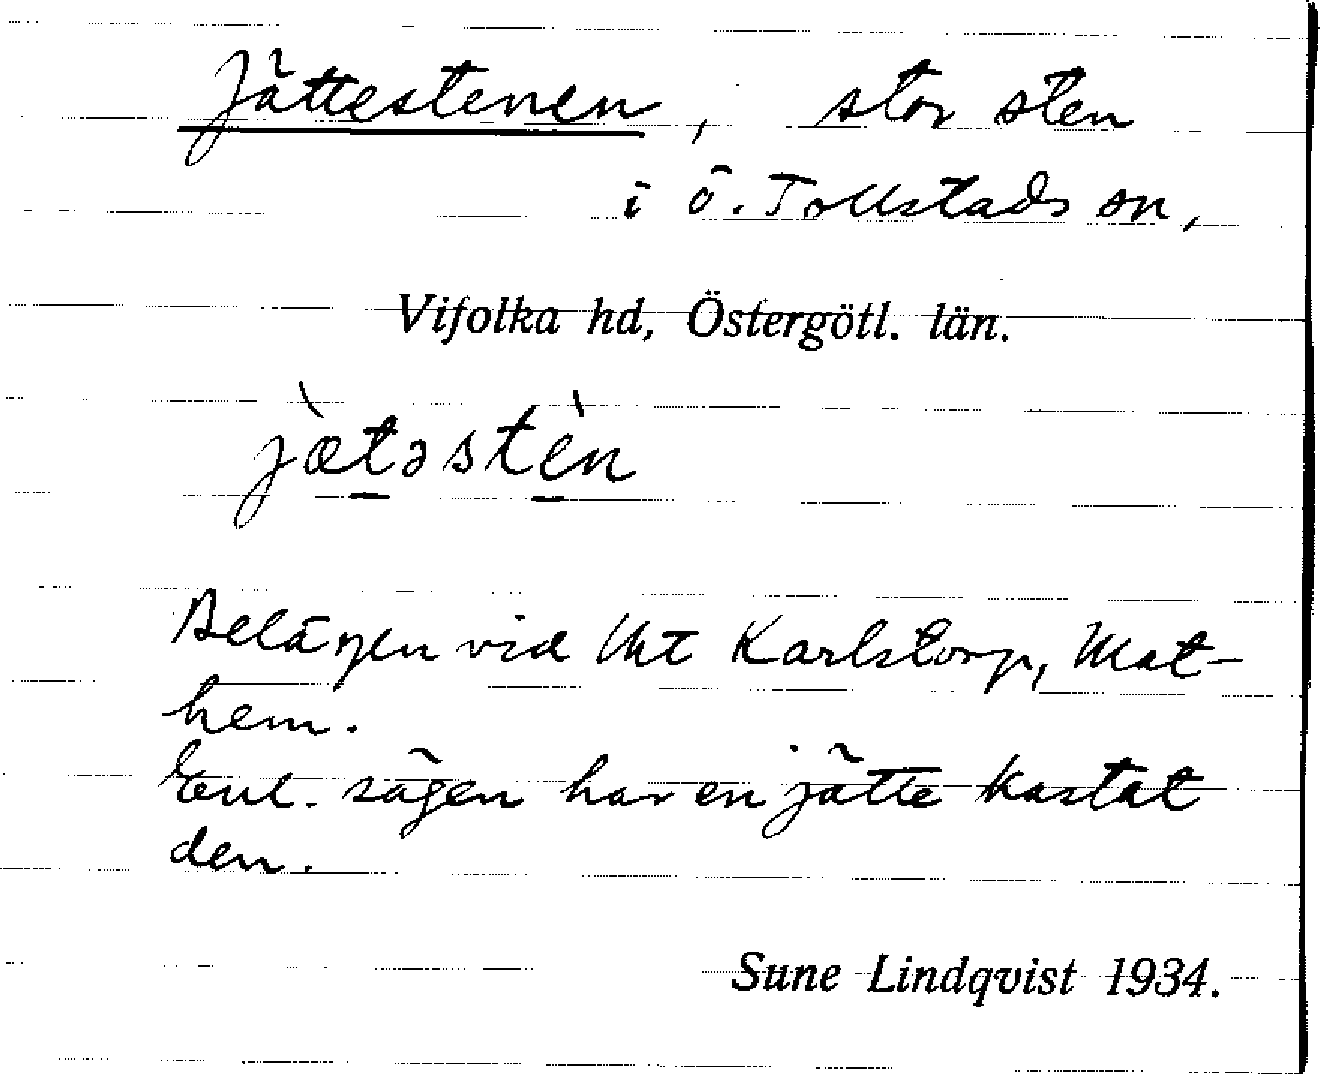 Jättestenen, stor sten
i Ö. Tollstads sn,
Vifolka hd, Östergötl. län.
jæ̀təstèn
Belägen vid Karlstorp, Mat-
hem.
Enl. sägen har en jätte kastat
den.
Sune Lindqvist 1934.